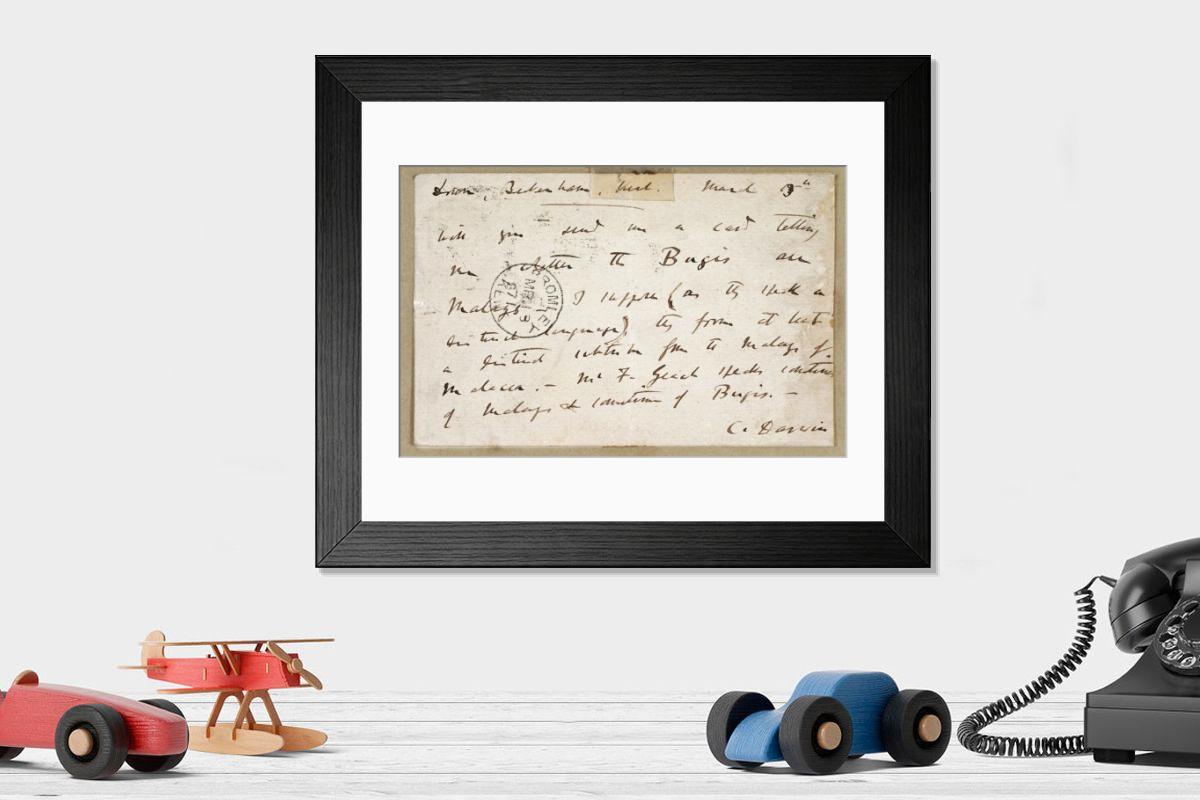 Down, Beckenham, Kent. March 3rd
Will you send me a card telling
me whether the Bugis are
Malays I suppose (as they speak a
distinct language) they form at least
a distinct subdivision from the Malays of
Malacca. – Mr F. Geach speaks sometimes
of Malays & sometimes of Bugis. –
C. Darwin
BROMLEY
MR
KENT